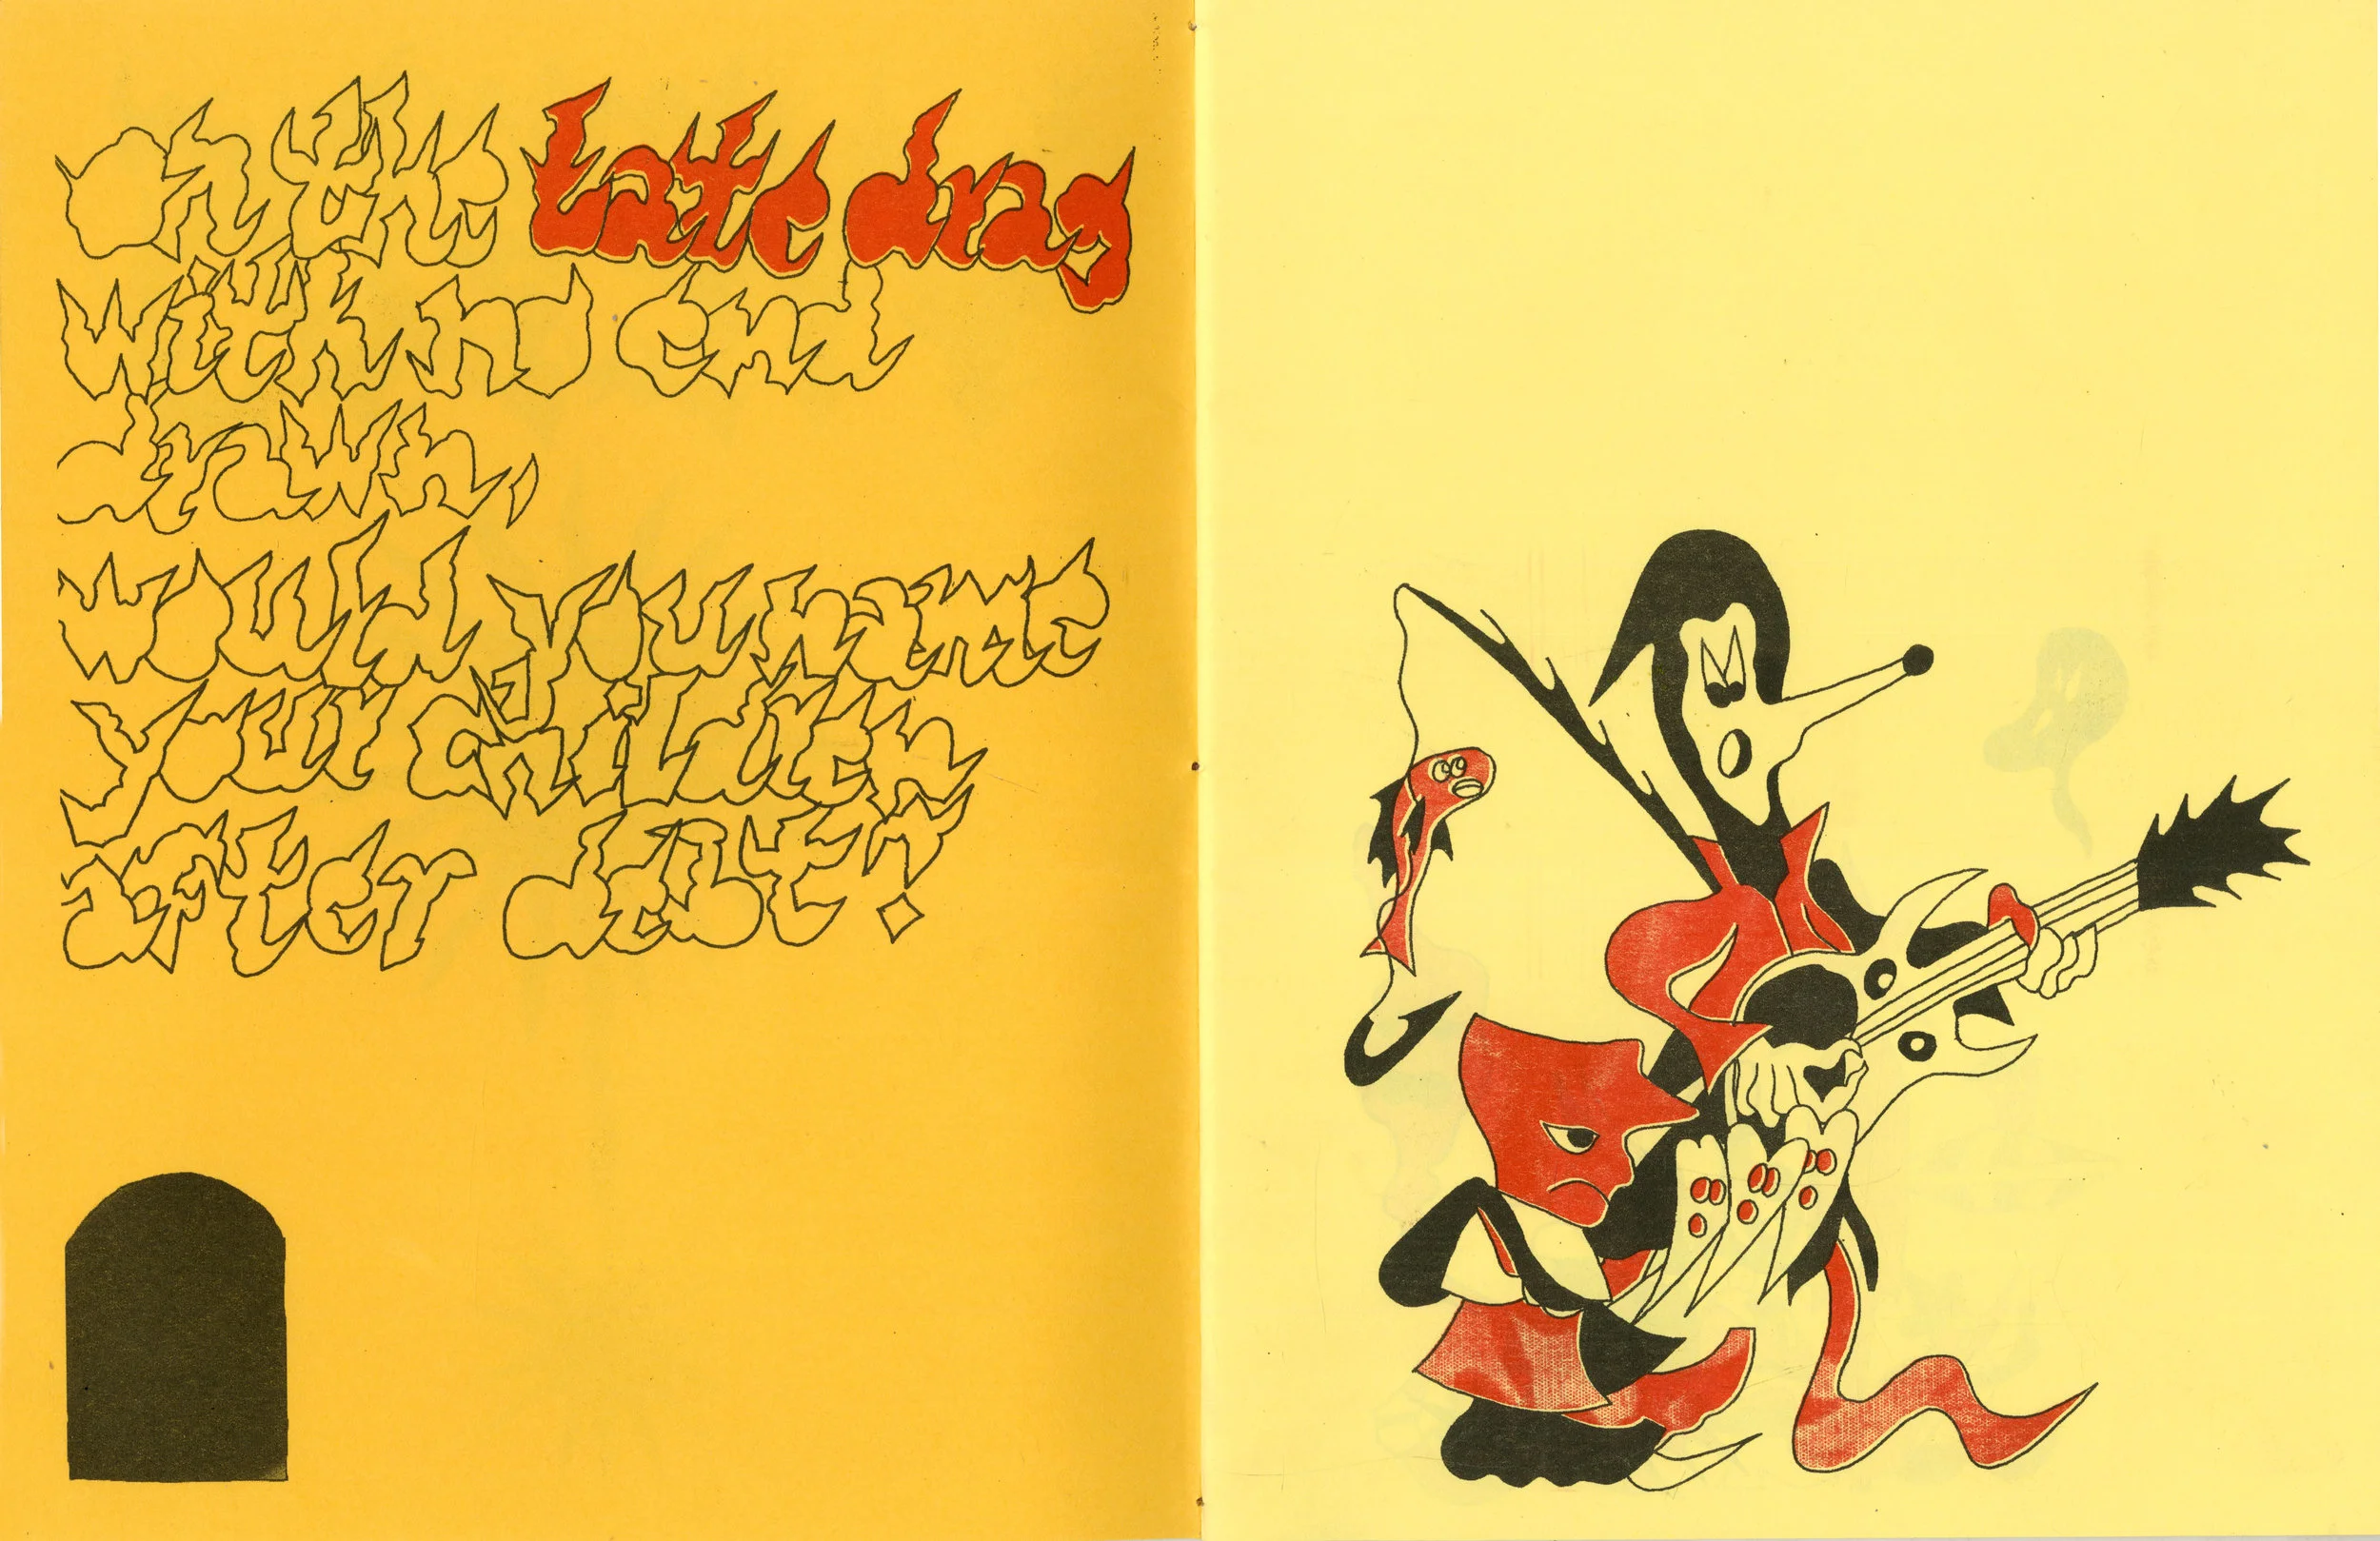 On the Late drag
with no end
drawn,
would you name
your children
after debt?